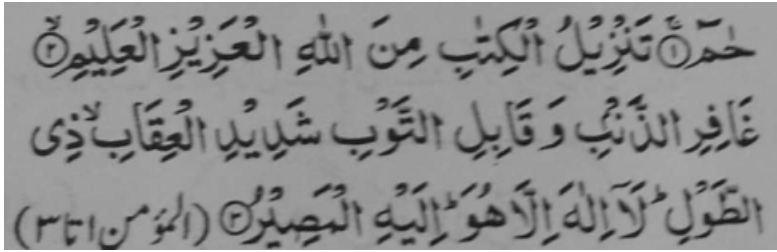 حٰمٓ ۚ﴿۱﴾ تَنْزِیْلُ الْکِتٰبِ مِنَ اللّٰهِ الْعَزِیْزِ الْعَلِیْمِ ۙ﴿۲﴾
غَافِرِ الذَّنْۢبِ وَ قَابِلِ التَّوْبِ شَدِیْدِ الْعِقَابِ ۙ ذِی
الطَّوْلِ ؕ لَاۤ اِلٰهَ اِلَّا هُوَ ؕ اِلَیْهِ الْمَصِیْرُ ﴿۳﴾ (المؤمن ۱ تا ۳)